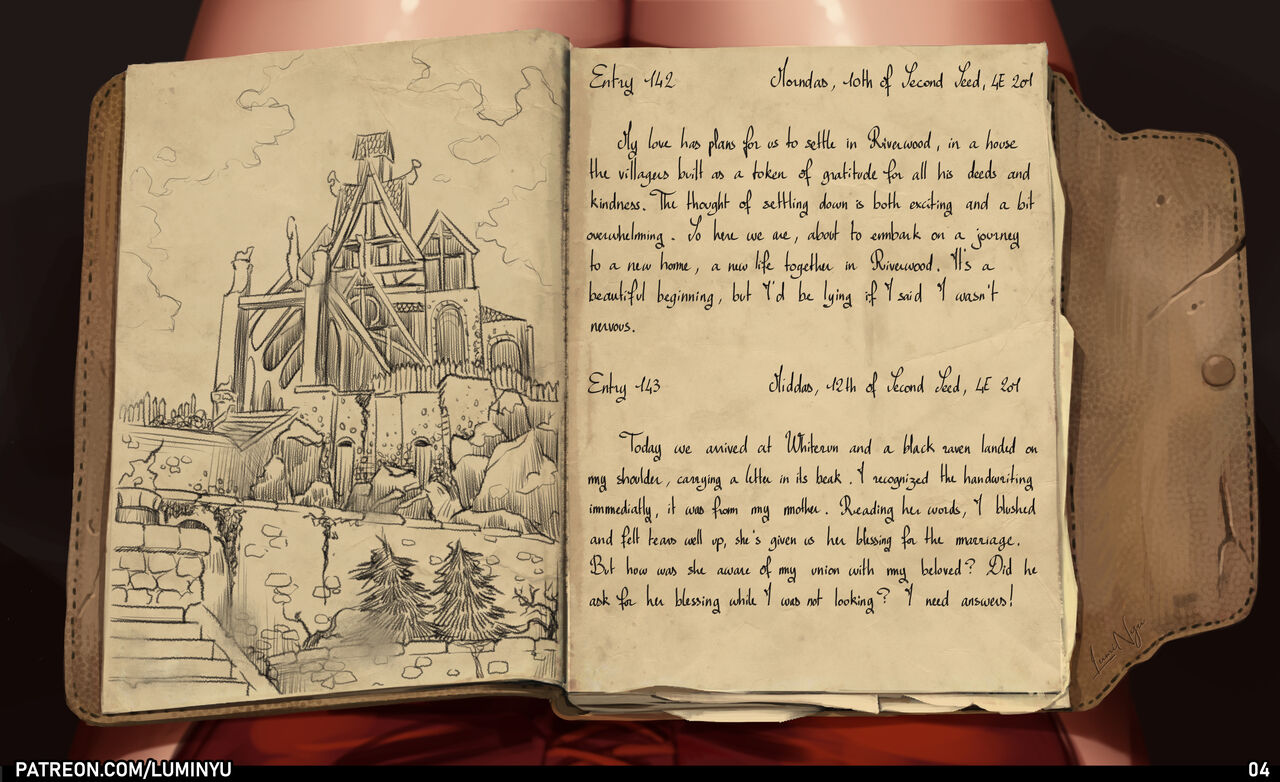 Entry 142 Morndas, 10th of Second Seed, 4E 201
My love has plans for us to settle in Riverwood, in a house
the villagers built as a token of gratitude for all his deeds and
kindness. The thought of settling down is both exciting and a bit
overwhelming. So here we are, about to embark on a journey
to a new home, a new life together in Riverwood. It's a
beautiful beginning, but I'd be lying if I said I wasn't
nervous.
Entry 143 Middas, 12th of Second Seed, 4E 201
Today we arrived at Whiterun and a black raven landed on
my shoulder, carrying a letter in its beak. I recognized the handwriting
immediatly, it was from my mother. Reading her words, I blushed
and felt tears well up, she's given us her blessing for the marriage.
But how was she aware of my union with my beloved? Did he
ask for her blessing while I was not looking? I need answers!
PATREON.COM/LUMINYU
04